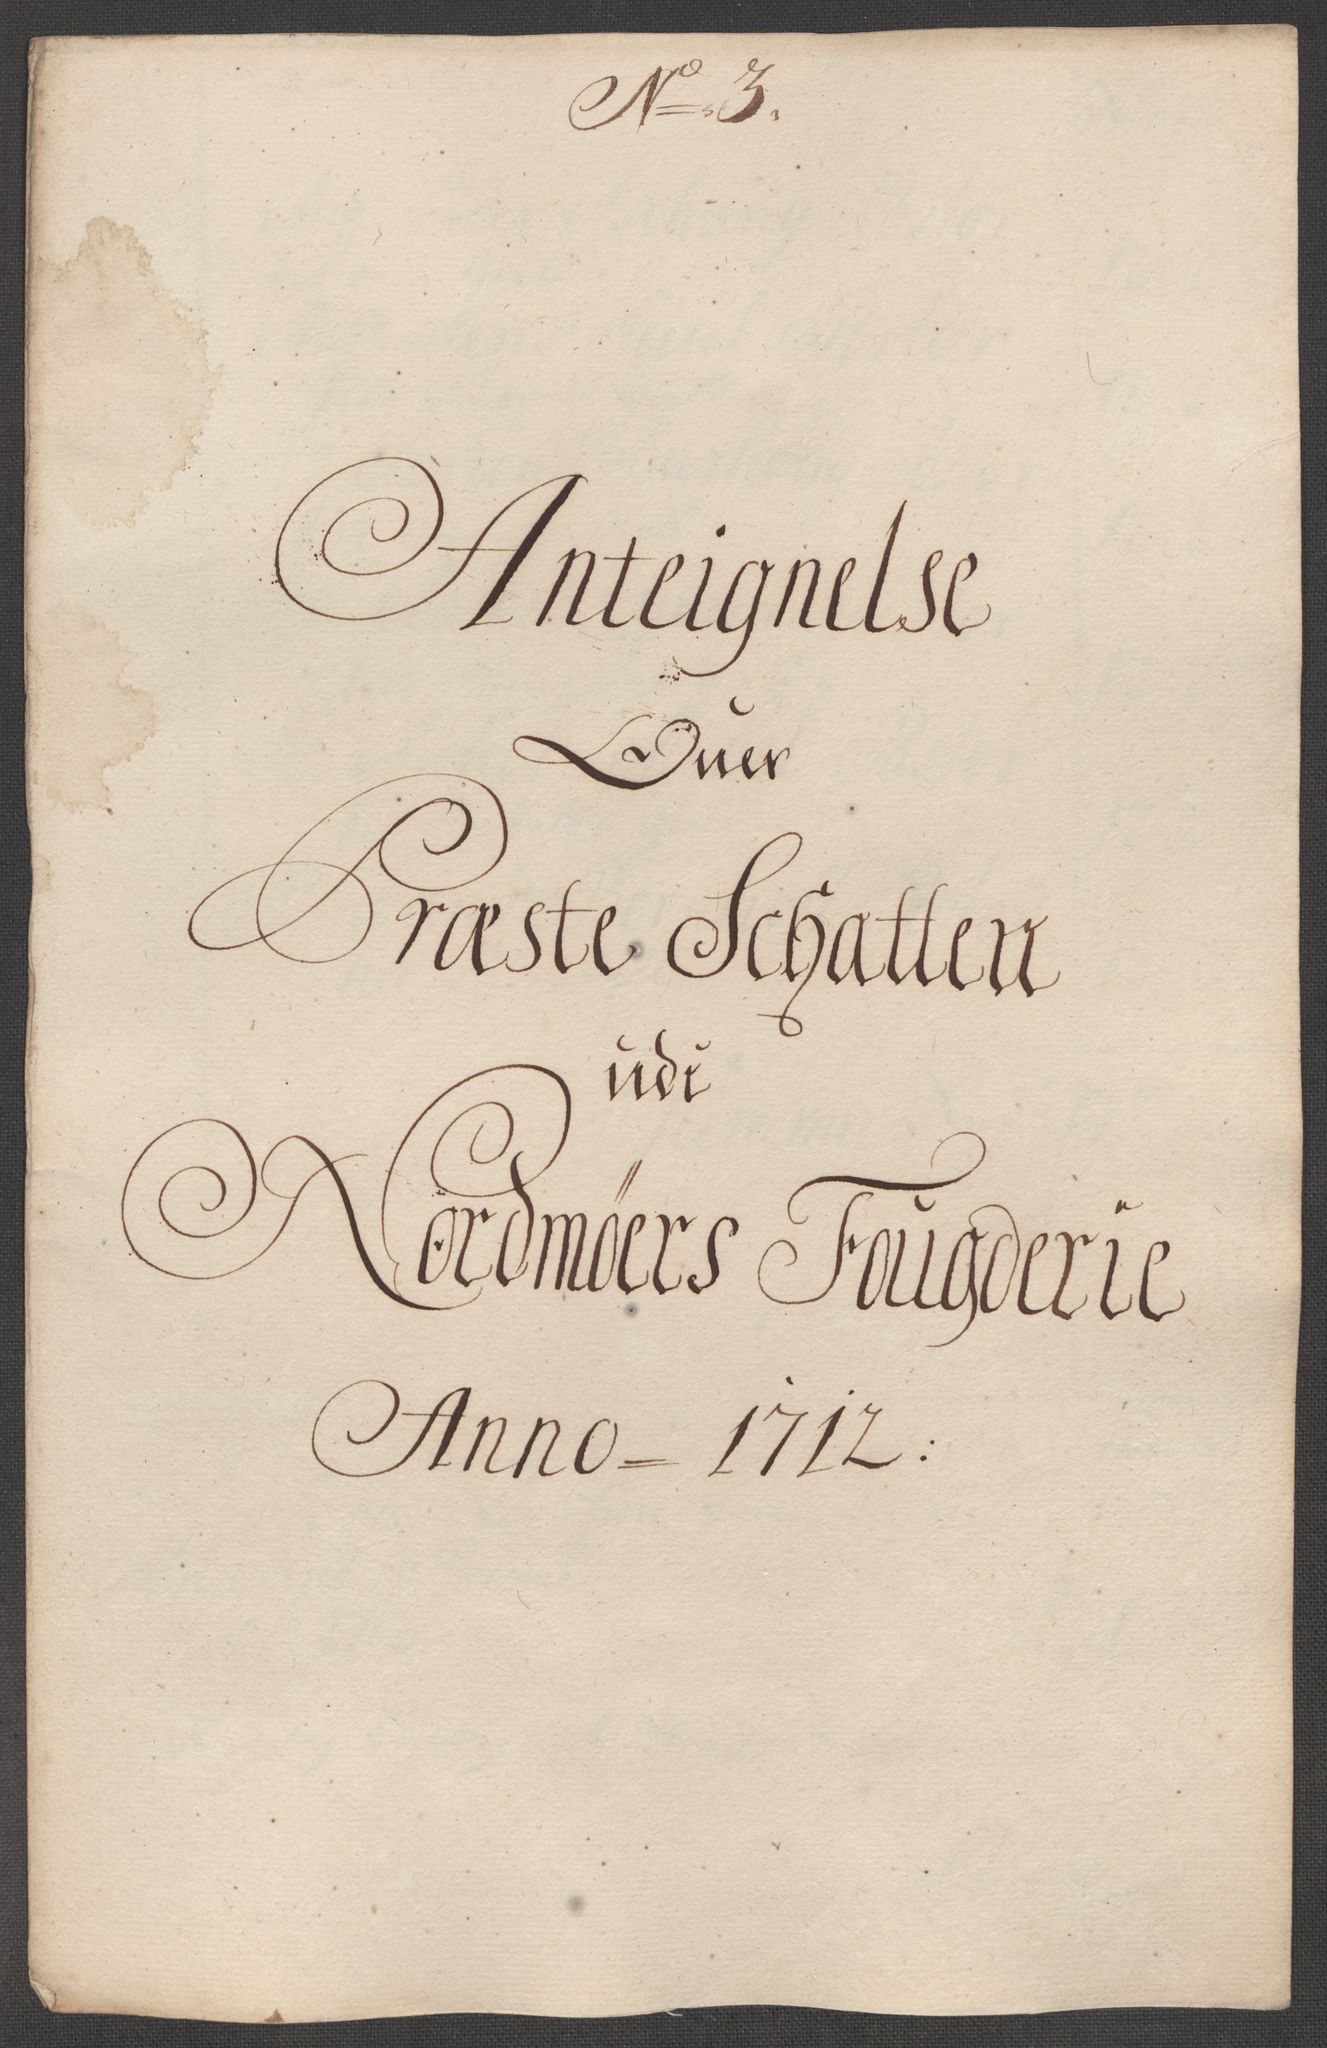 No 3.
Anteignelse
Ouer
Præste Schatten
udi
Nordmöers Fougderie
Anno = 1712: